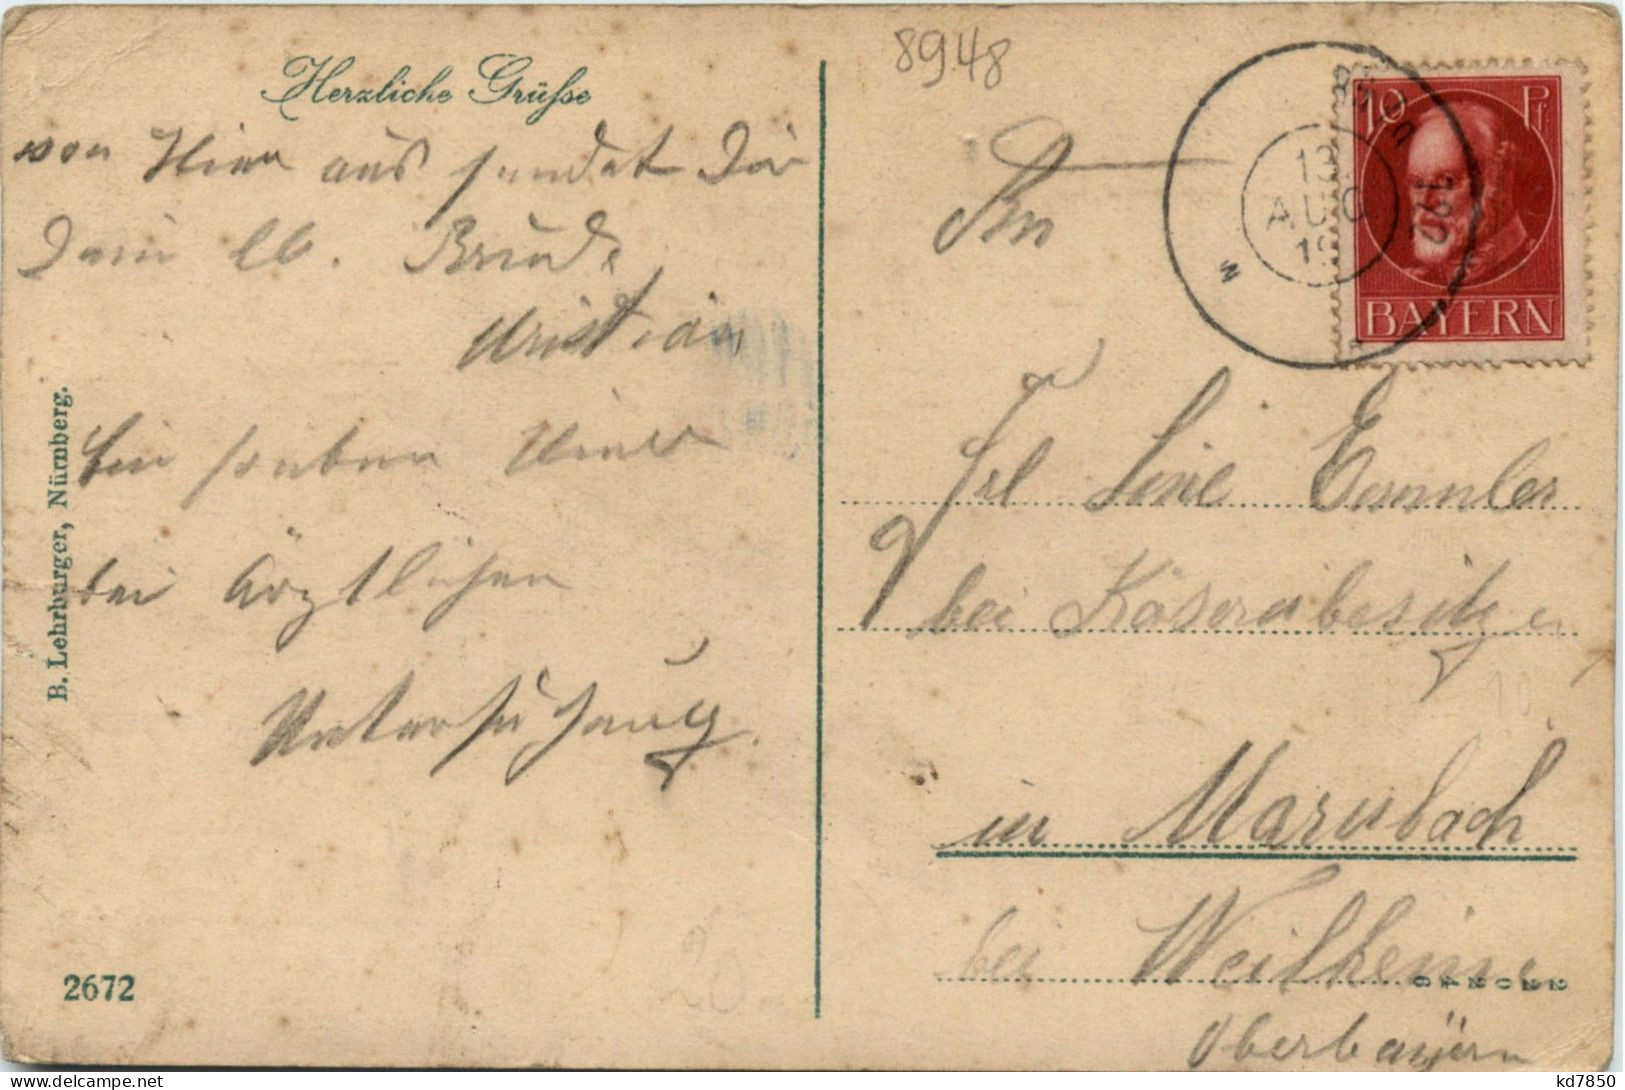 8948
Herzliche Grüße
von Hier aus sendet Dir
Dein lb. Bruder
Christian
bin soeben Hier
bei Ärztlichen
Untersuchung.
B. Lehrburger, Nürnberg.
2672
10 Pf
BAYERN
13
AUG
19
An
Frl Sine
bei Käsereibesitzer
in Marnbach
bei Weilheim
220246
Oberbayern
20
kd7850